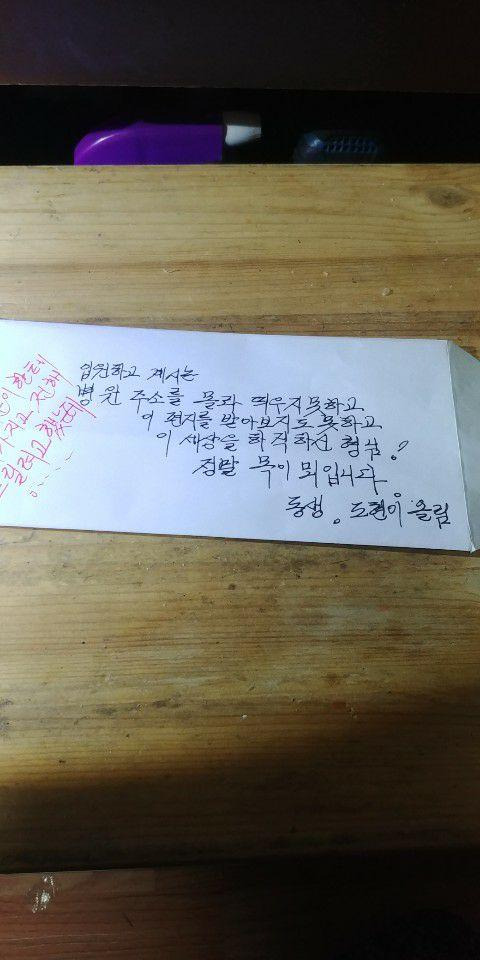 입원하고 계시는
병원 주소를 몰라 띄우지못하고
이 편지를 받아보지도 못하고
이 세상을 하직하신 형님!
정말 목이 뫼입니다.
동생. 도현이 올림
이한테
가지고 전해
드릴려고 했는데
......